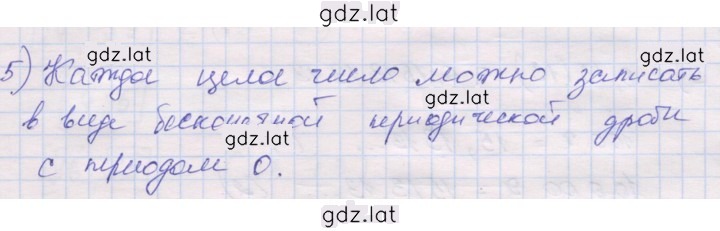 gdz.lat
gdz.lat
5) Кажда цела число можно записать
gdz.lat
в виде бесконячной периодической дроби
gdz.lat
gdz.lat
с периодом 0.
gdz.lat